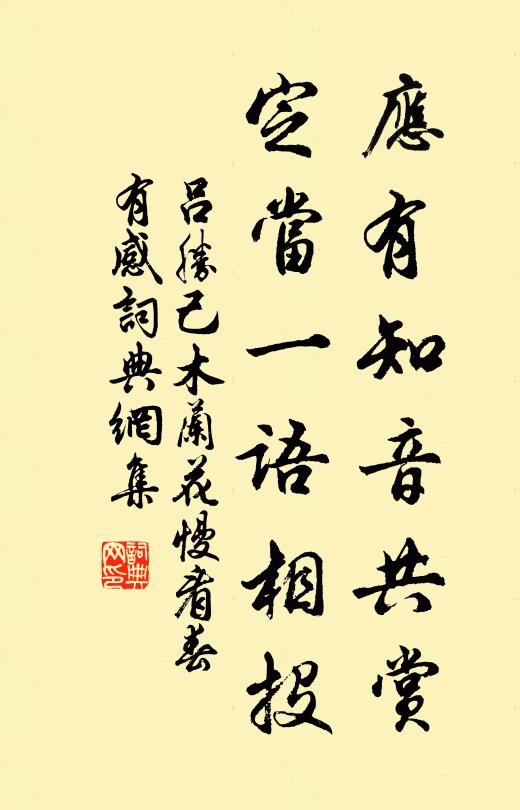 應有知音共賞
定當一語相投
呂勝己木蘭花慢看春
有感詞典網集
詞典网印